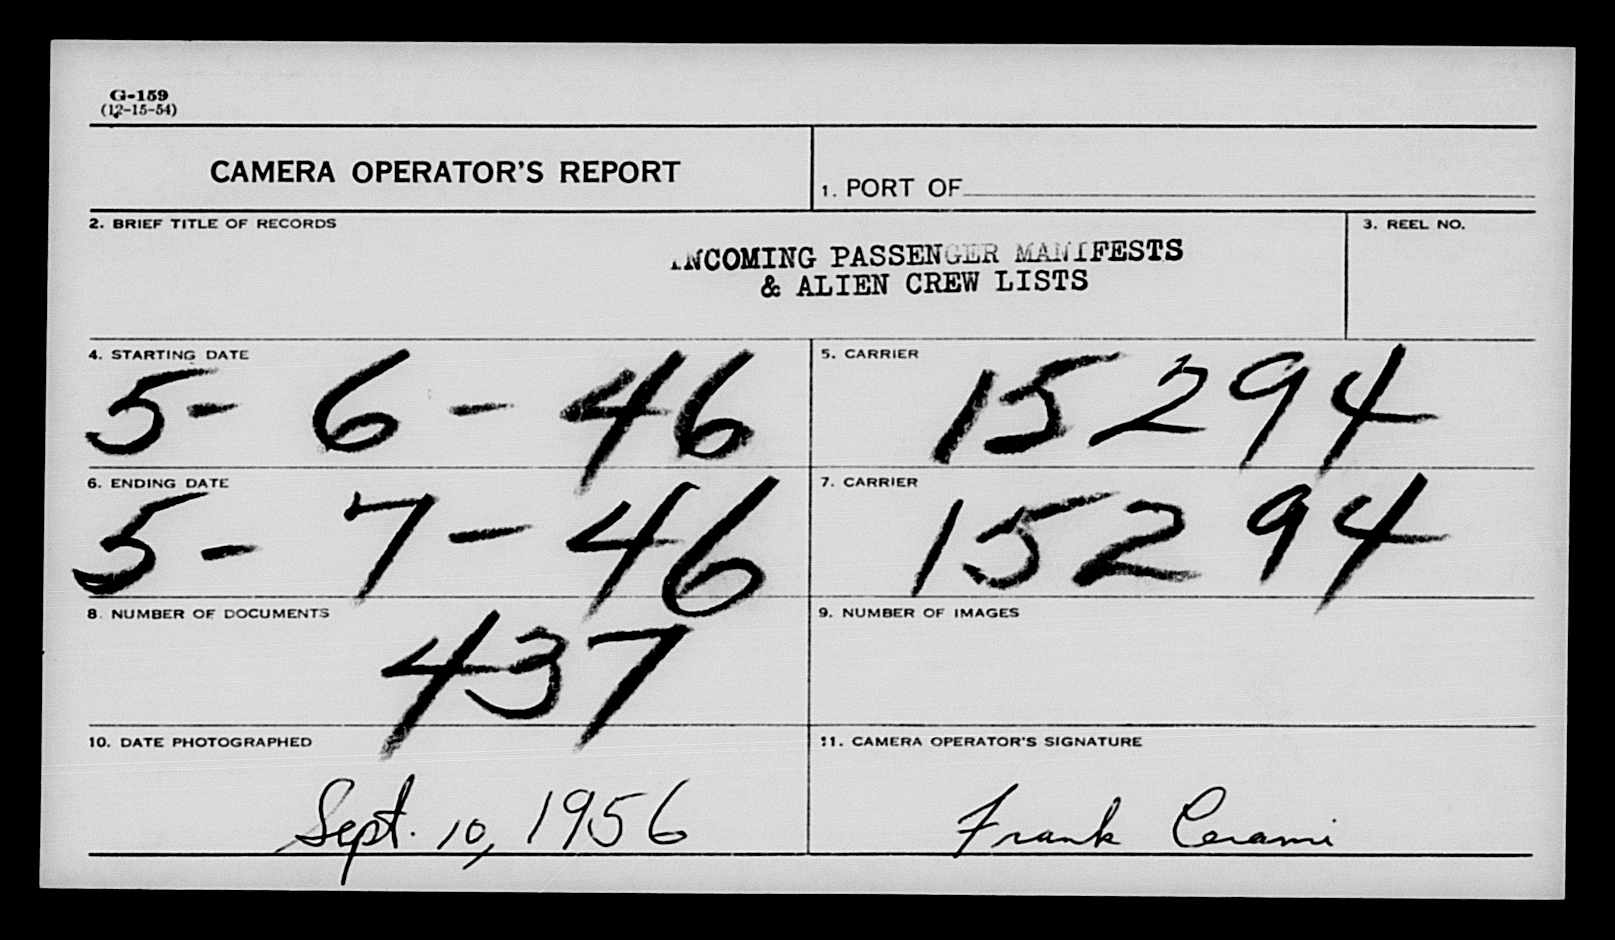 G-159
(12-15-54)
CAMERA OPERATOR'S REPORT
1. PORT OF
2. BRIEF TITLE OF RECORDS
INCOMING PASSENGER MANIFESTS
& ALIEN CREW LISTS
3. REEL NO.
4. STARTING DATE
5-6-46
5. CARRIER
15294
6. ENDING DATE
5-7-46
7. CARRIER
15294
8. NUMBER OF DOCUMENTS
437
9. NUMBER OF IMAGES
10. DATE PHOTOGRAPHED
Sept. 10, 1956
11. CAMERA OPERATOR'S SIGNATURE
Frank Cerami